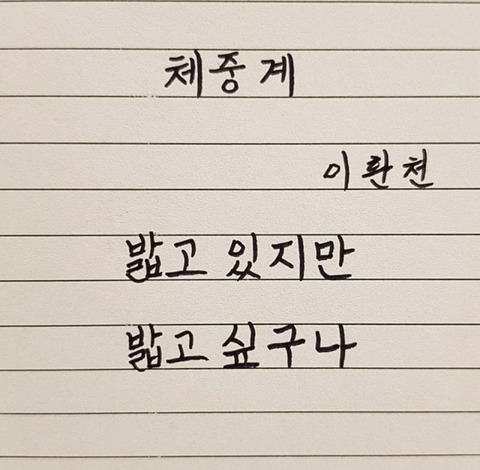 체중계
이환천
밟고 있지만
밟고 싶구나